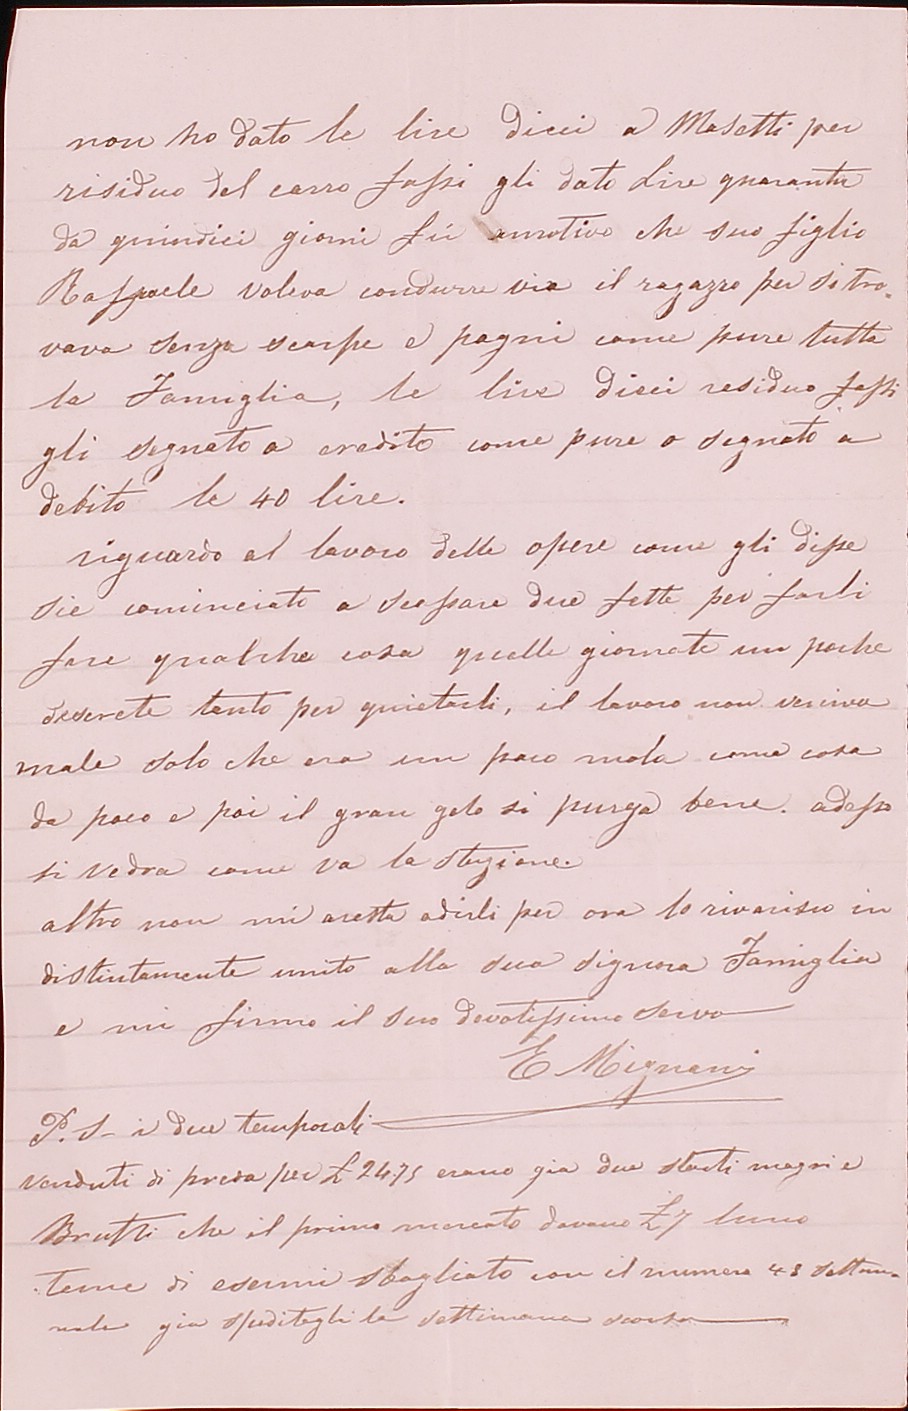 non ho dato le lire dieci a Masetti per
risiduo del carro fassi gli dato Lire quaranta
da quindici giorni fú amotivo che suo figlio
Raffaele voleva condurre via il ragazzo per si tro-
vava senza scarpe e pagni come pure tutta
la Famiglia, le lire dieci residuo fassi
gli segnato a credito come pure o segnato a
debito le 40 lire.
riguardo al lavoro delle opere come gli disse
sie cominciato a scassare due fette per farli
fare qualche cosa quelle giornate un poche
descrete tanto per quietarli, il lavoro non veniva
male solo che era un poco mola come cosa
da poco e poi il gran gelo si purga bene. adesso
si vedra come va la stagione.
altro non mi aresta adirli per ora lo riverisco in
distintamente unito alla sua signora Famiglia
e mi firmo il suo devotissimo servo
E Mignani
P. S- i due temporali
venduti di preda per £ 24.75 erano gia due stati magri e
Brutti che il primo mercato davano £7 luno
teme di esermi sbagliato con il numero 43 settim-
nale gia speditogli la settimana scorsa